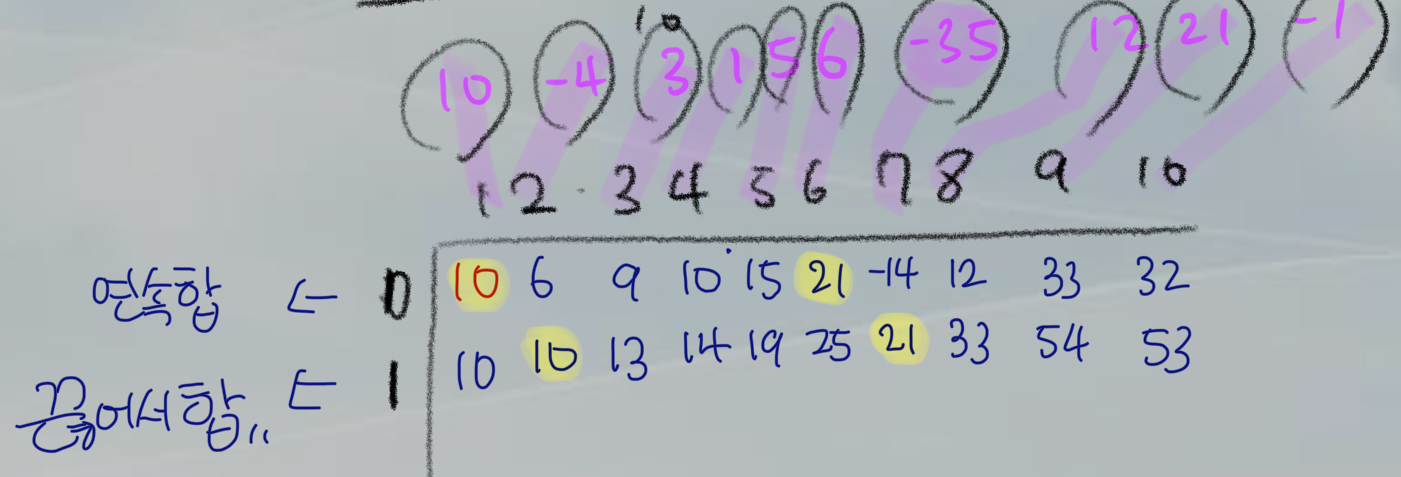 10
10 -4 3 1 5 6 -35 12 21 -1
1 2 3 4 5 6 7 8 9 10
연속합 ← 0 10 6 9 10 15 21 -14 12 33 32
끊어서합,, ← 1 10 10 13 14 19 25 21 33 54 53